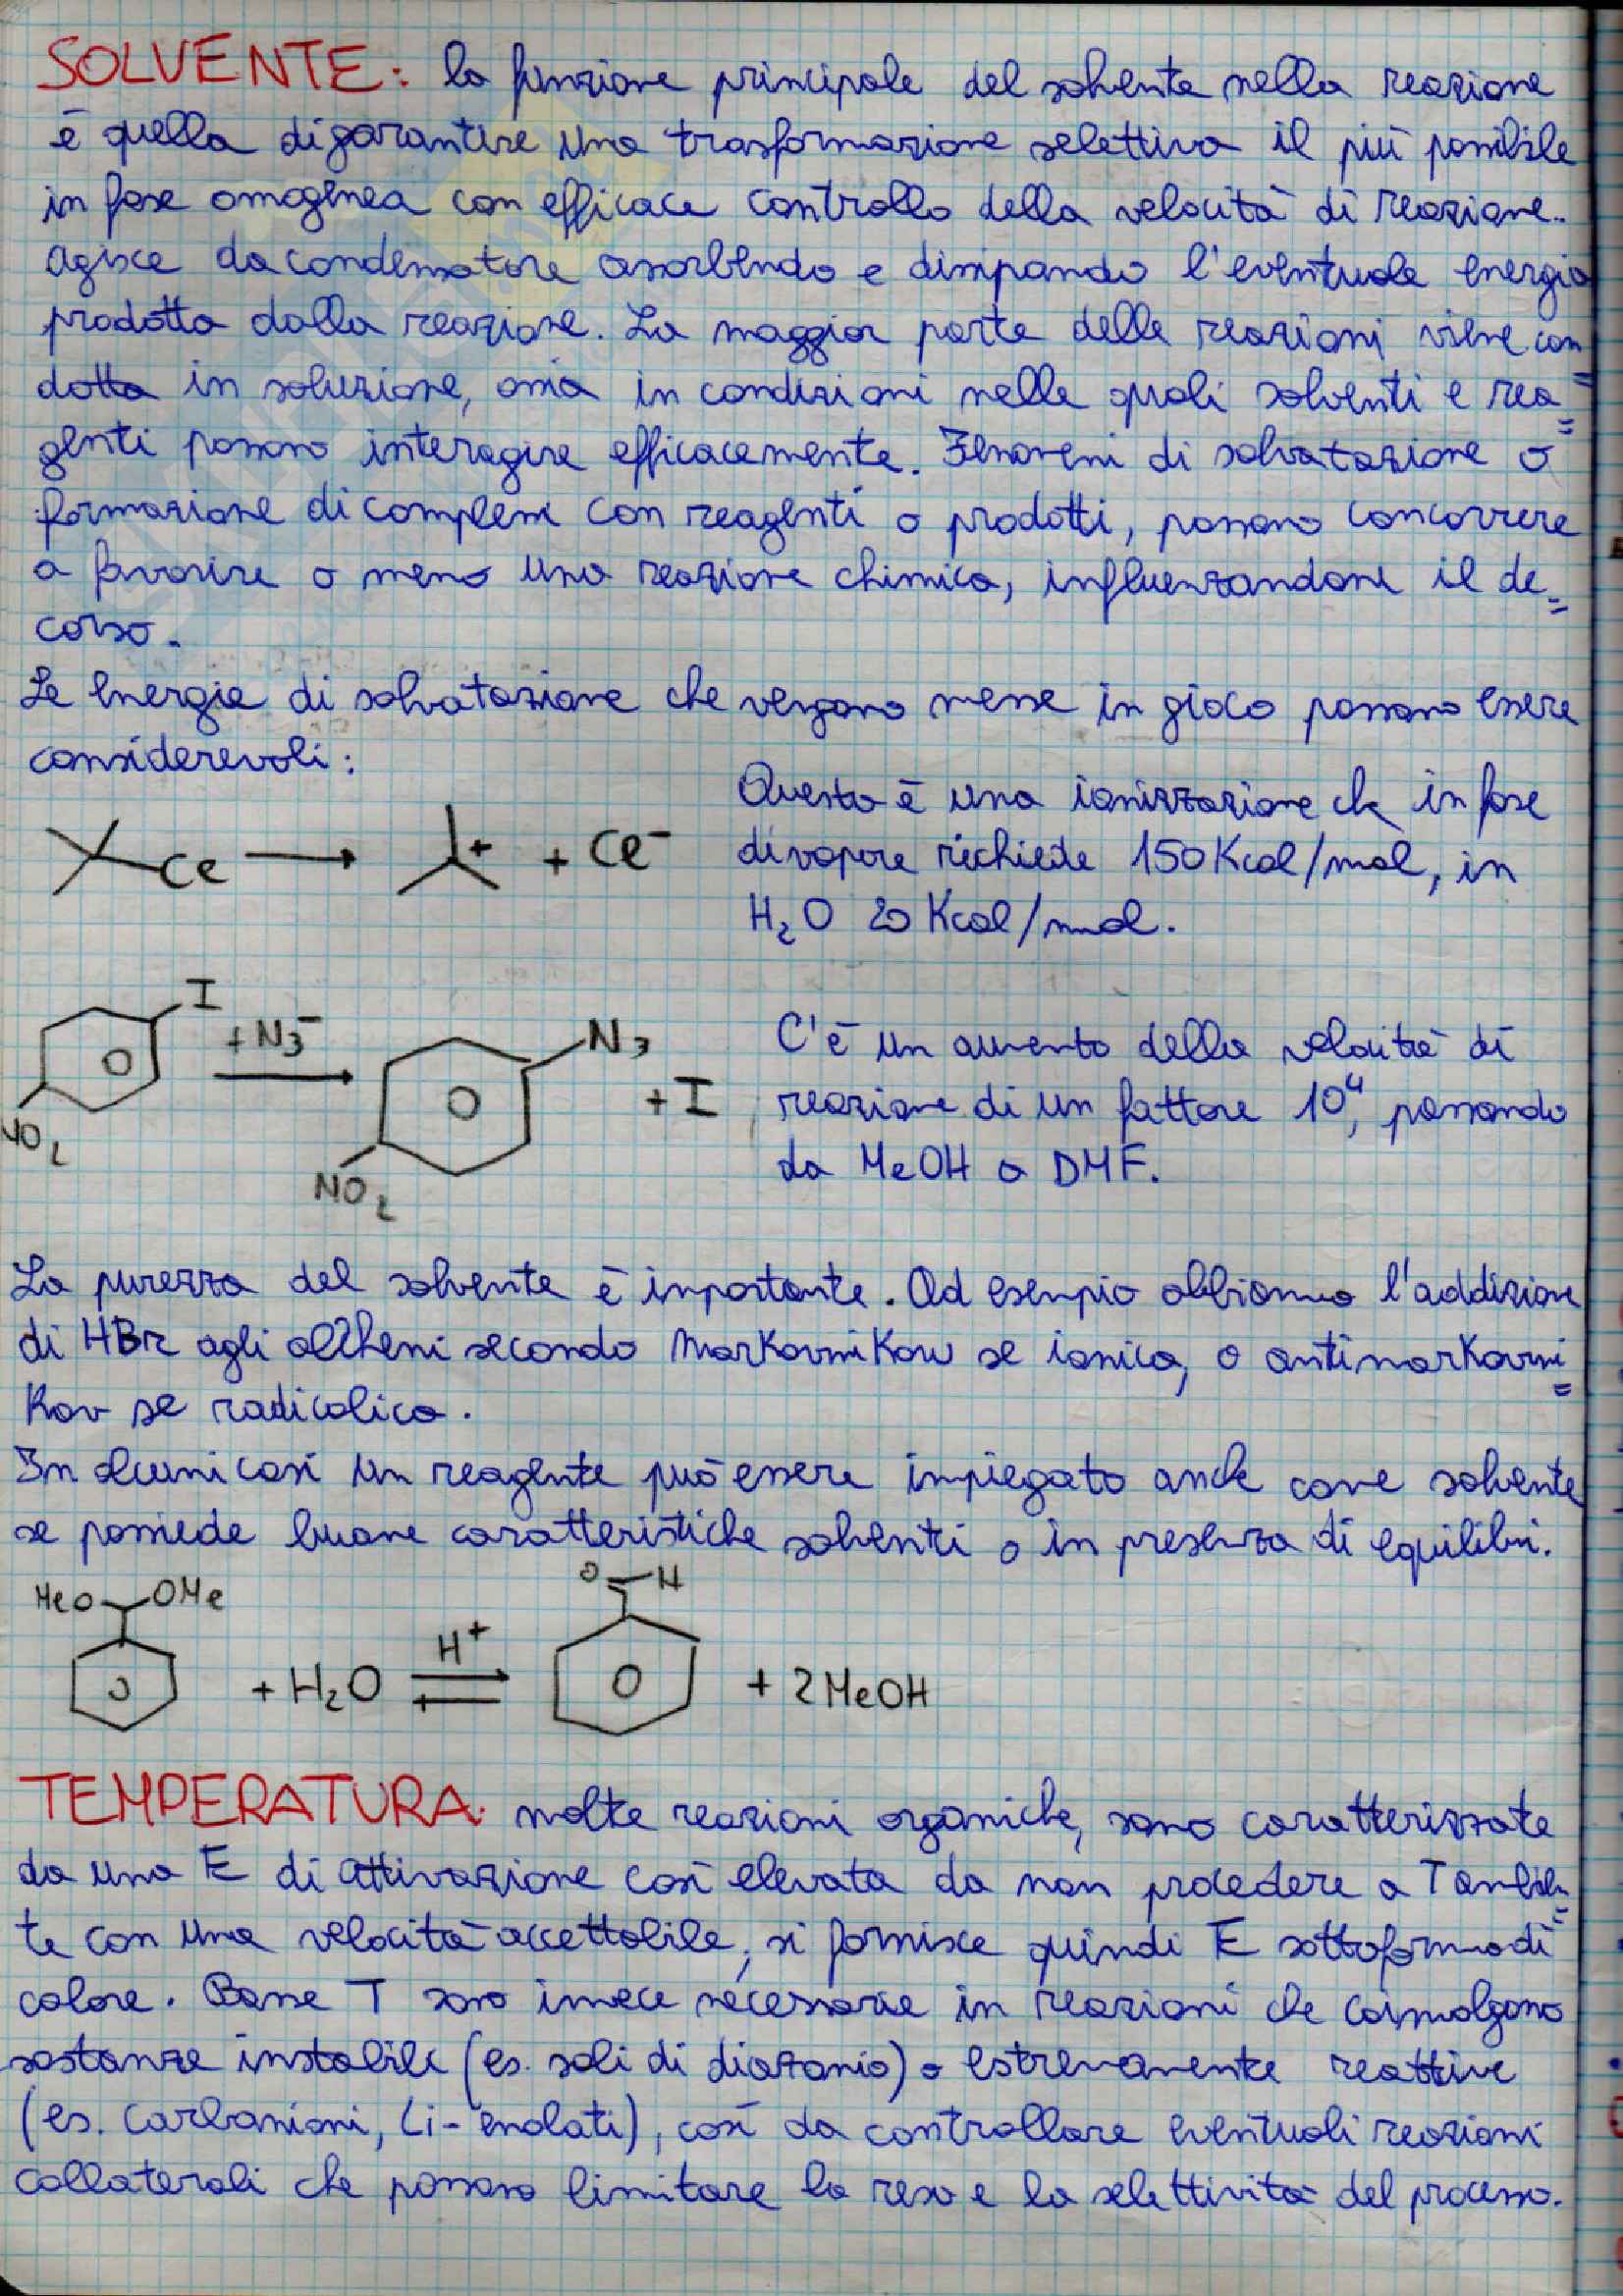 SOLVENTE: la funzione principale del solvente nella reazione
è quella di garantire una trasformazione selettiva il più possibile
in fase omogenea con efficace controllo della velocità di reazione.
Agisce da condensatore assorbendo e dissipando l'eventuale energia
prodotta dalla reazione. La maggior parte delle reazioni viene con=
dotta in soluzione, ossia in condizioni nelle quali solventi e rea=
genti possono interagire efficacemente. Fenomeni di solvatazione o
formazione di complessi con reagenti o prodotti, possono concorrere
a favorire o meno una reazione chimica, influenzandone il de=
corso.
Le energie di solvatazione che vengono messe in gioco possono essere
considerevoli:
Questa è una ionizzazione che in fase
di vapore richiede 150 Kcal/mol, in
H2O 20 Kcal/mol.
Cl → + + Cl⁻
I + N3⁻ → N3 + I
NO2 NO2
C'è un aumento della velocità di
reazione di un fattore 10⁴, passando
da MeOH a DMF.
La purezza del solvente è inportante. Ad esenpio abbiamo l'addizione
di HBr agli alcheni secondo MarKovniKow se ionica, o antimarKovni=
Kov se radicalica.
In alcuni casi un reagente può essere impiegato anche come solvente
se possiede buone caratteristiche solventi o in presenza di equilibri.
MeO OMe O H
+ H2O H⁺ ⇌ + 2MeOH
TEMPERATURA: molte reazioni organiche, sono caratterizzate
da una E di attivazione così elevata da non procedere a T ambien=
te con una velocità accettabile, si fornisce quindi E sottoforma di
calore. Basse T sono invece necessarie in reazioni che coinvolgono
sostanze instabili (es. sali di diazonio) o estremamente reattive
(es. carbanioni, Li-enolati), così da controllare eventuali reazioni
collaterali che possono limitare la resa e la selettività del processo.